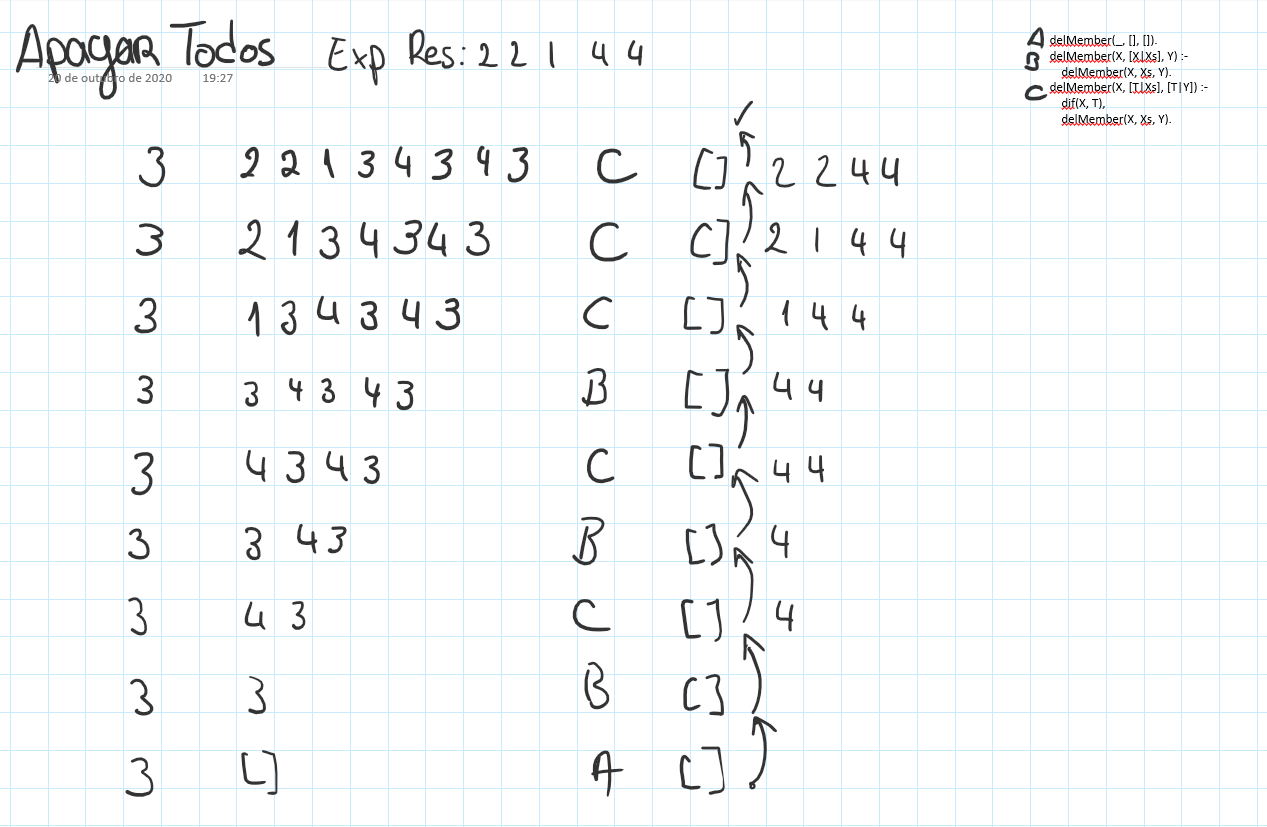 Apagar Todos Exp Res: 2 2 1 4 4
20 de outubro de 2020 19:27
A delMember(_, [], []).
B delMember(X, [X|Xs], Y) :-
delMember(X, Xs, Y).
C delMember(X, [T|Xs], [T|Y]) :-
dif(X, T),
delMember(X, Xs, Y).
3 2 2 1 3 4 3 4 3 C [] 2 2 4 4
3 2 1 3 4 3 4 3 C [] 2 1 4 4
3 1 3 4 3 4 3 C [] 1 4 4
3 3 4 3 4 3 B [] 4 4
3 4 3 4 3 C [] 4 4
3 3 4 3 B [] 4
3 4 3 C [] 4
3 3 B []
3 [] A []